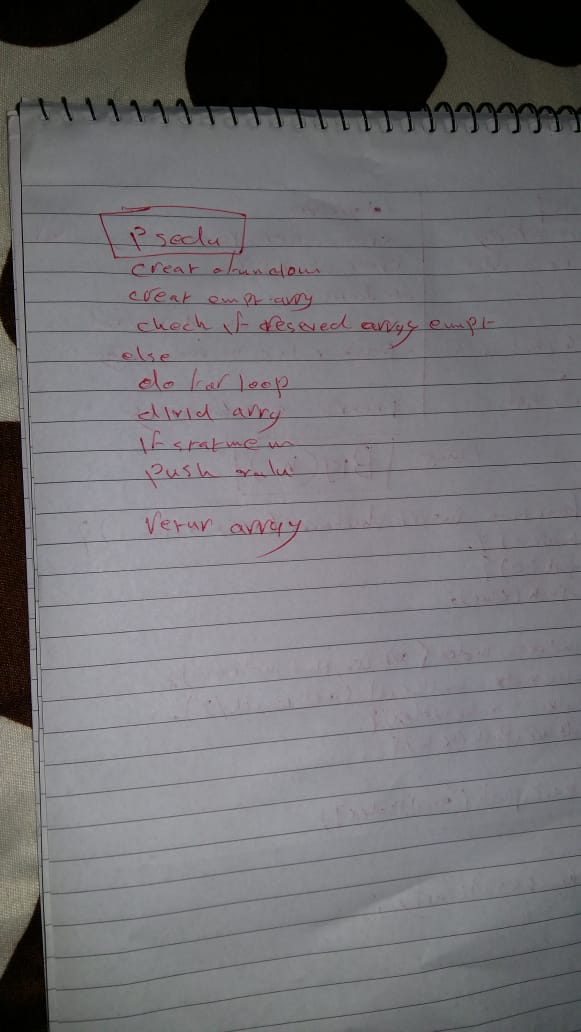 Psedu
creat
creat empt arry
chech if reseved arrys empt
else
do for loop
divid arry
if statmen
push valu
retur array